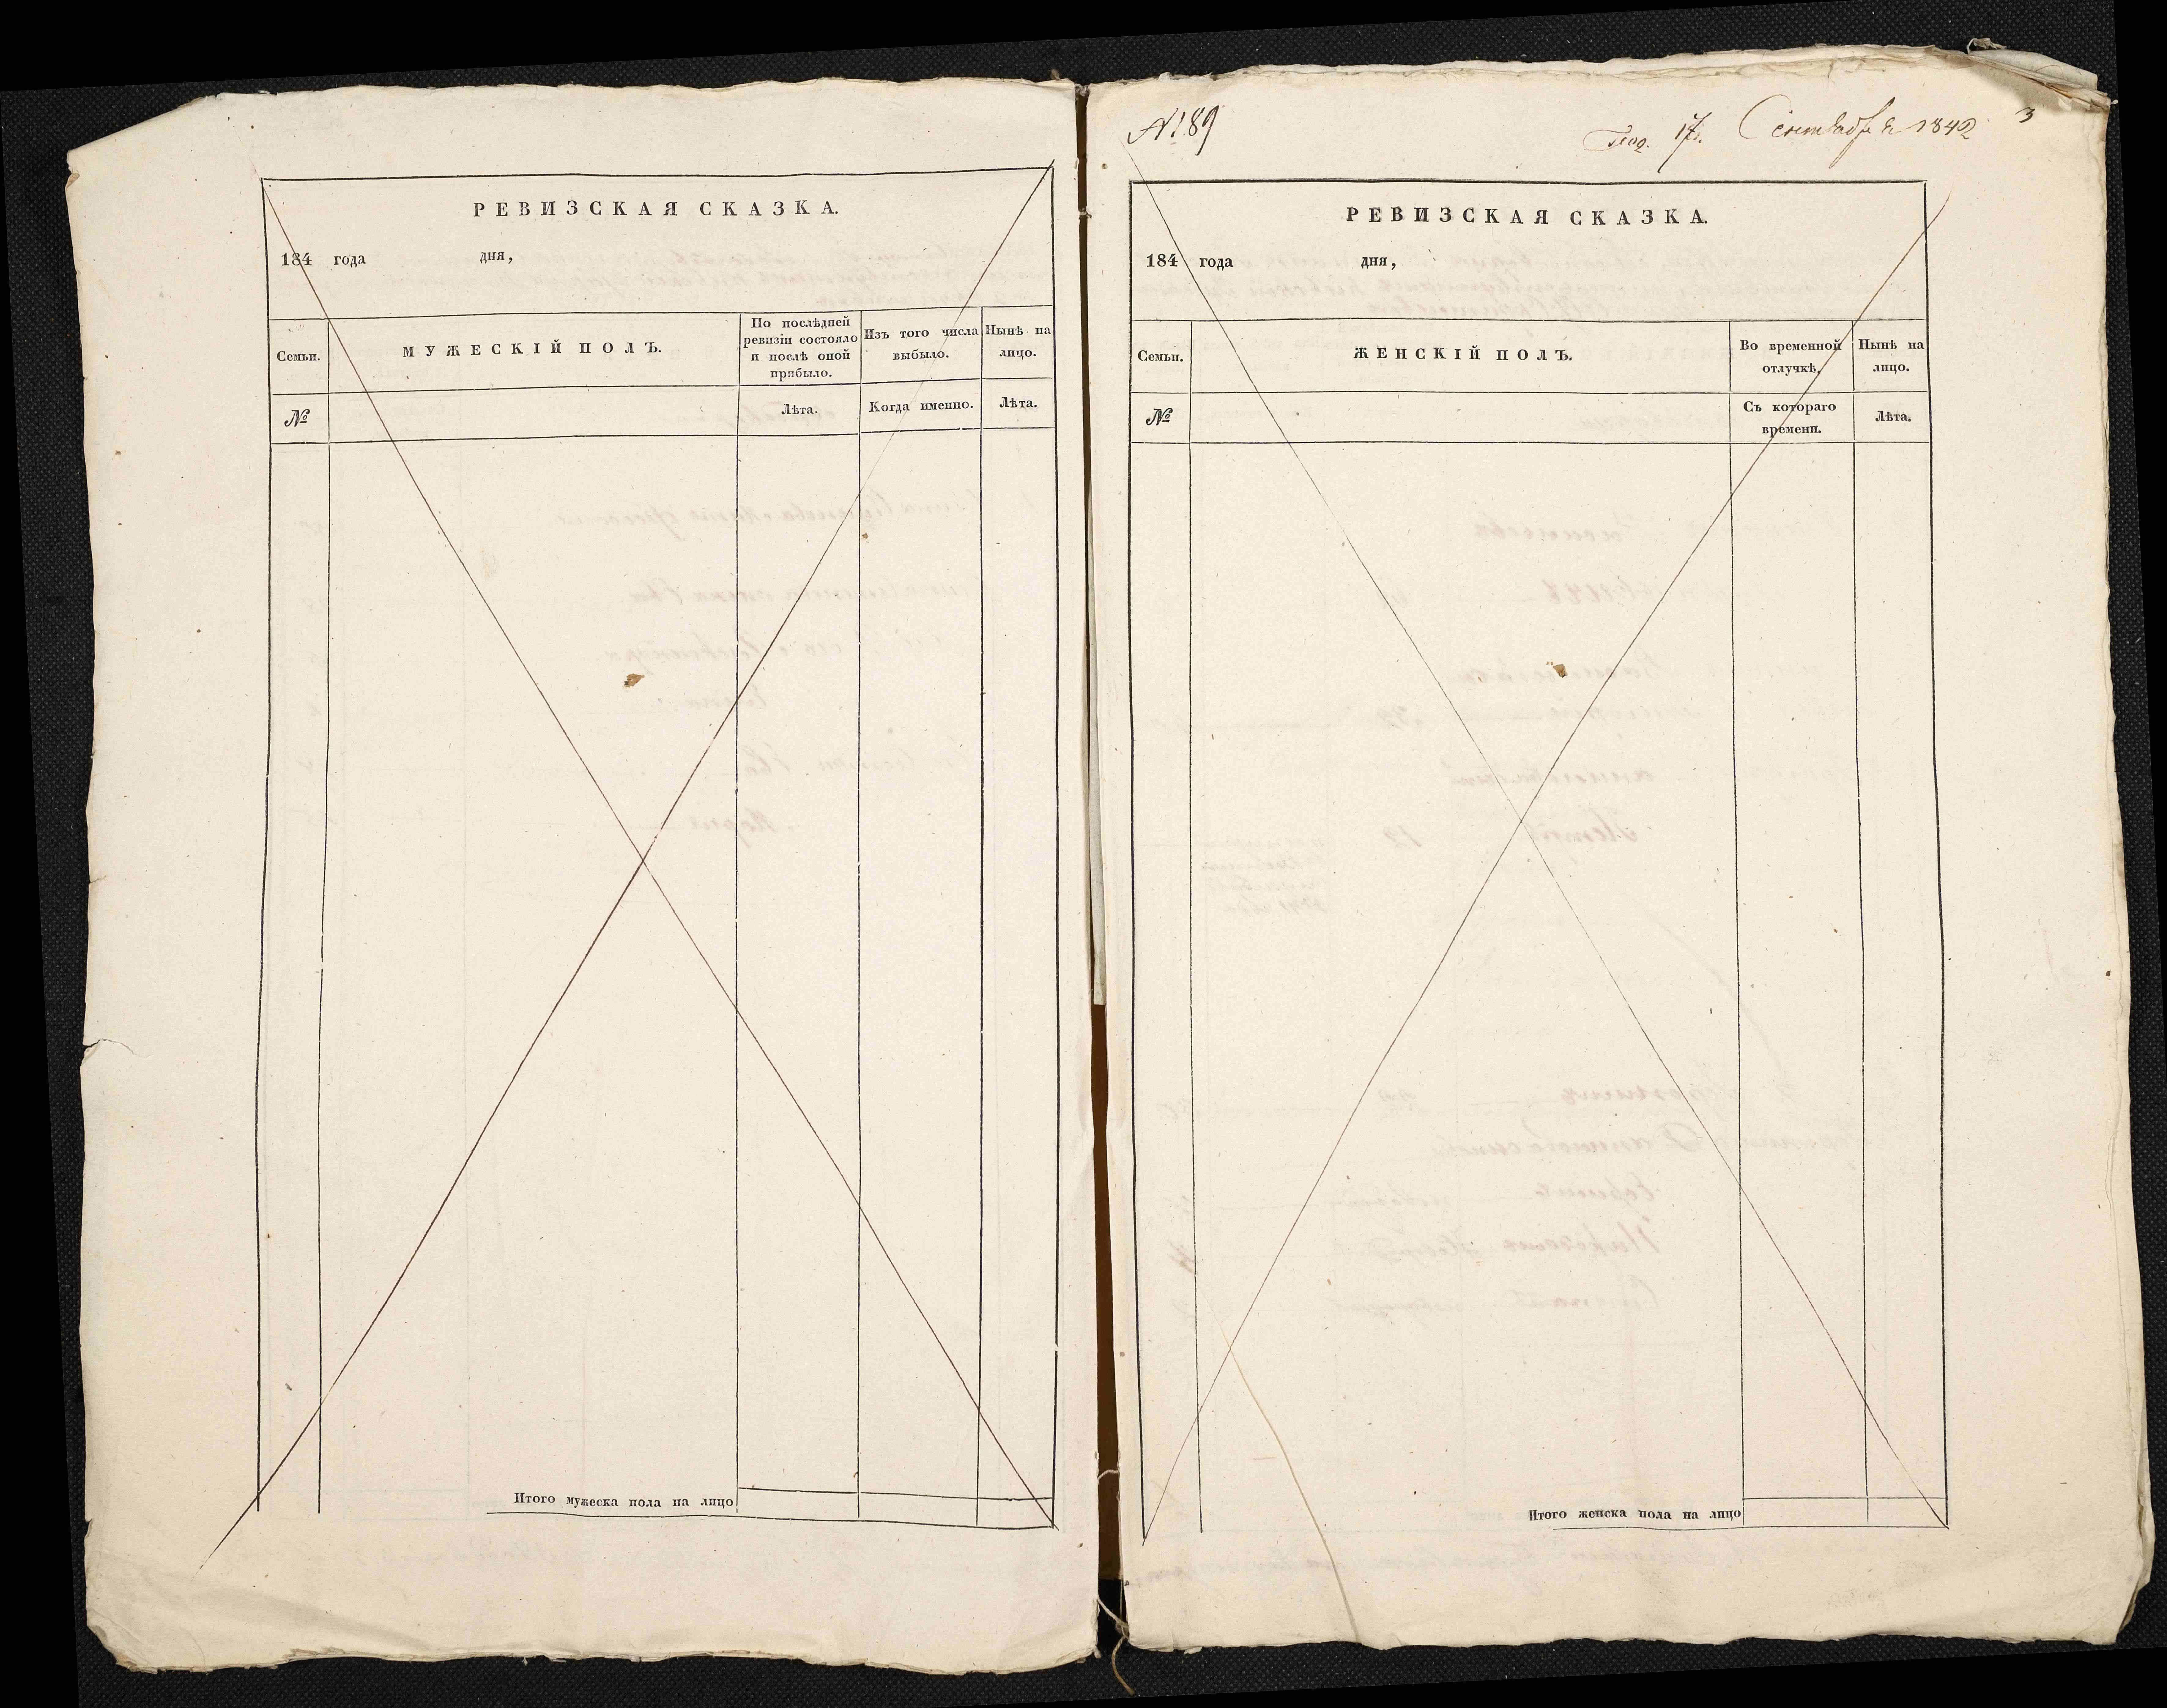 РЕВИЗСКАЯ СКАЗКА.
184 года дня,
Семьи.
МУЖЕСКІЙ ПОЛЪ.
По послѣдней ревизіи состояло и послѣ оной прибыло.
Изъ того числа выбыло.
Нынѣ на лицо.
№
Лѣта.
Когда именно.
Лѣта.
Итого мужеска пола на лицо
№189
17. Сентября 1842
3
РЕВИЗСКАЯ СКАЗКА.
184 года дня,
Семьи.
ЖЕНСКІЙ ПОЛЪ.
Во временной отлучкѣ,
Нынѣ на лицо.
№
Съ котораго времени.
Лѣта.
Итого женска пола на лицо